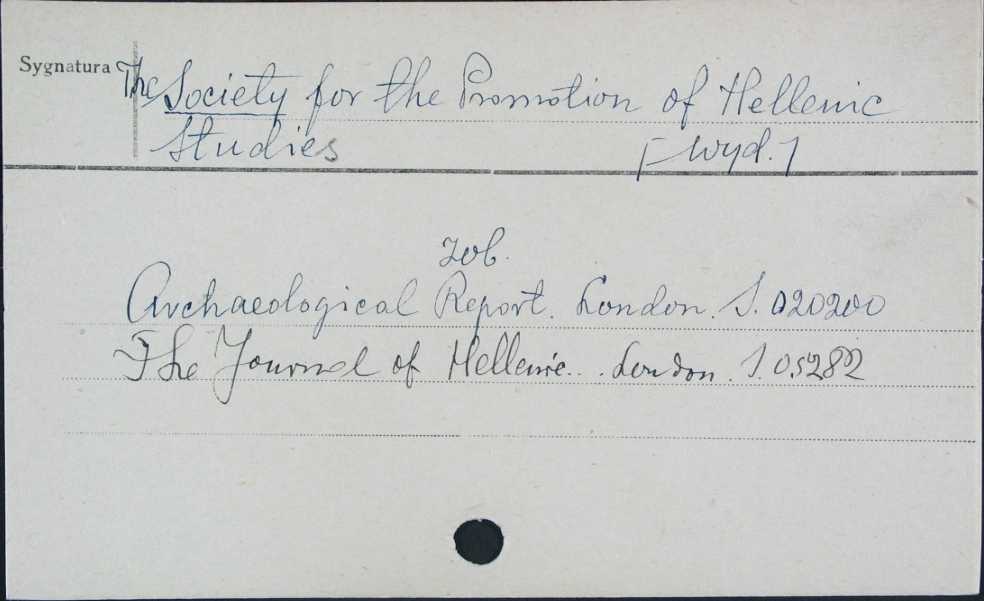 Sygnatura
The Society for the Promotion of Hellenic
Studies [wyd.]
Zob.
Archaeological Report. London. S. 020200
The Journal of Hellenic... London. S. 05282